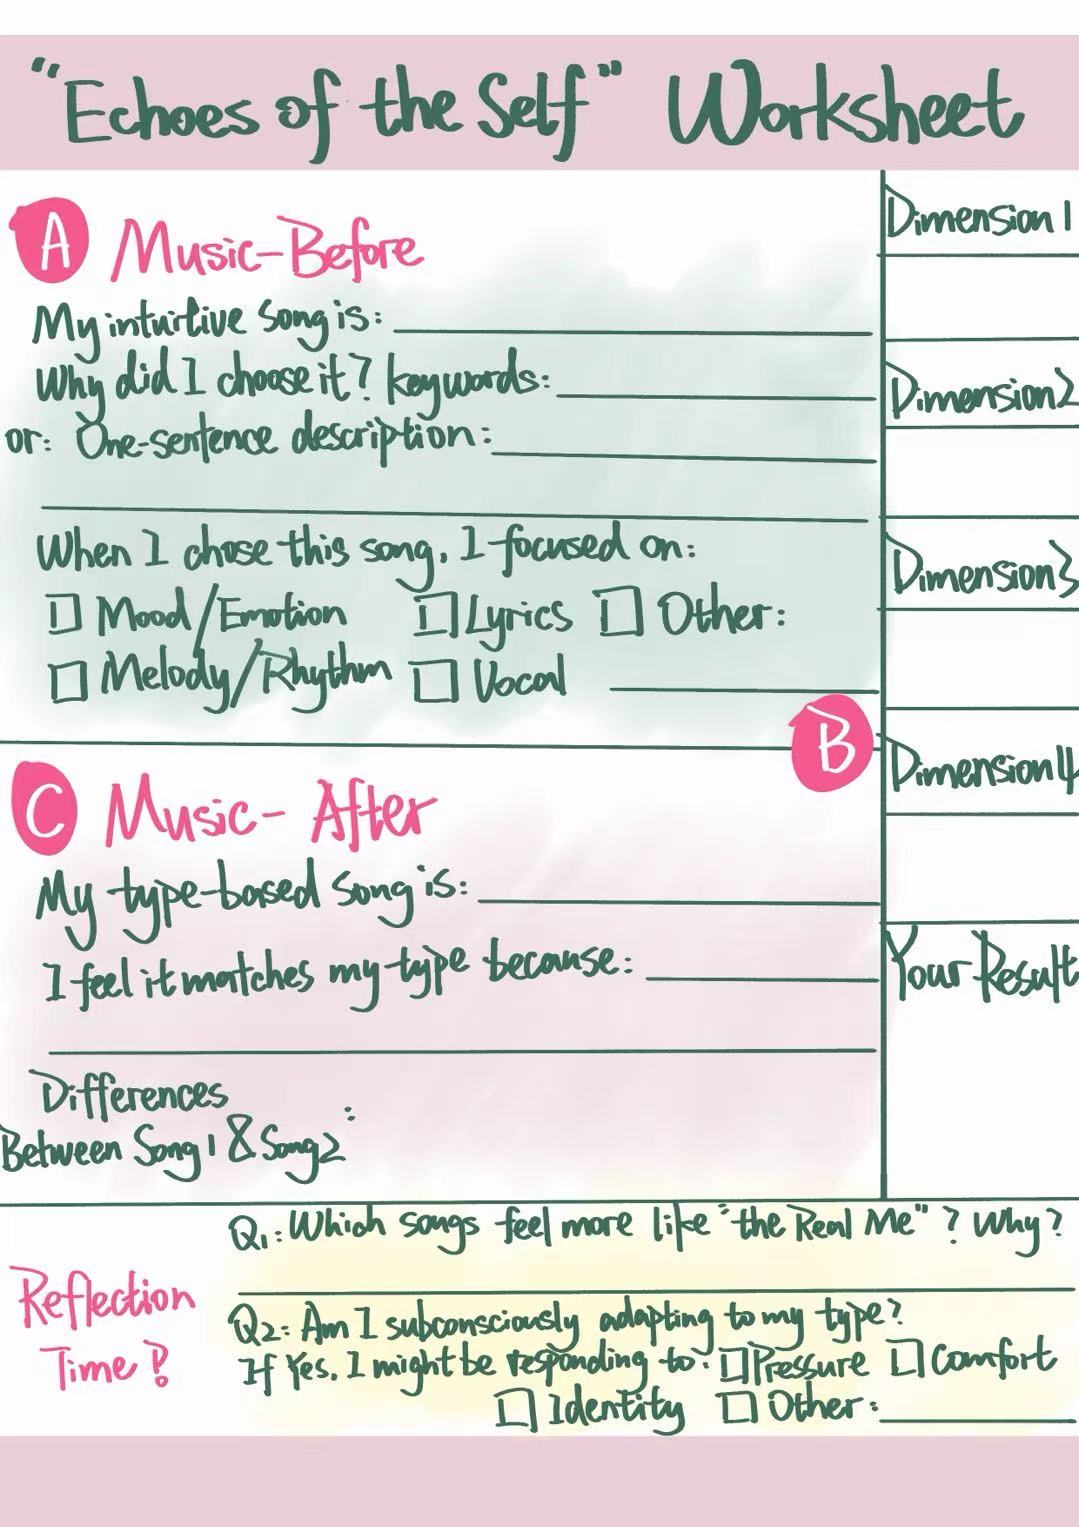 "Echoes of the Self" Worksheet
A Music-Before
My intuitive Song is:
Why did I choose it? keywords:
or: One-sentence description:
When I chose this song, I focused on:
Mood/Emotion Lyrics Other:
Melody/Rhythm Vocal
B
Dimension 1
Dimension 2
Dimension 3
Dimension 4
Your Result
C Music-After
My type-based song is:
I feel it matches my type because:
Differences
Between Song1 & Song2:
Reflection
Time!
Q1: Which songs feel more like "the Real Me"? Why?
Q2: Am I subconsciously adapting to my type?
If Yes, I might be responding to: Pressure Comfort
Identity Other: